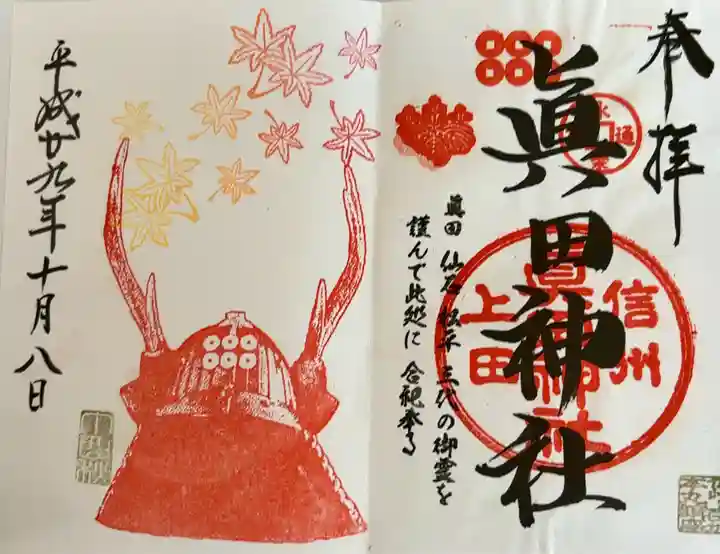 奉拝
眞田神社
信州
上田
眞田神社
眞田 仙石 松平 三代の御霊を
謹んで此処に 合祀奉る
平成廿九年十月八日